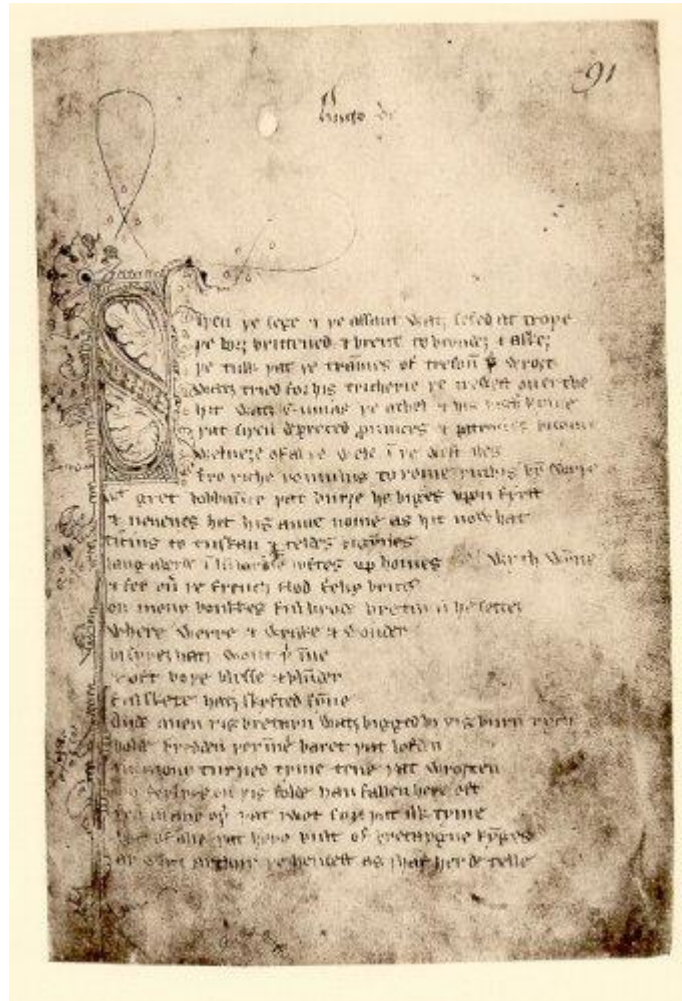 91
Hugo de
Siþen þe sege & þe assaut watz sesed at troye
þe borȝ brittened & brent to brondez & askez
þe tulk þat þe trāmes of tresoū þ wroȝt
watz tried for his tricherie þe trewest on erthe
hit watz Ennias þe athel & his highe kynde
þat siþen depreced prouinces & patrounes bicome
welneȝe of al þe wele ī þe west iles
fro riche romulus to rome ricchis hȳ swyþe
gret bobbaūce þat burȝe he biges vpon fyrst
& neuenes hit his aune nome as hit now hat
ticius to tuskan & teldes bigȳnes
langaberde ī lumbardie lyftes vp homes wyth wȳne
& fer oū þe french flod felix brutus
on mony bonkkes ful brode bretayn he settez
where werre & wrake & wonder
bi syþez hatz wont þ īne
& oft boþe blysse & blūder
ful skete hatz skyfted sȳne
Ande quen þis bretayn watz bigged bi þis burn rych
bolde bredden þer īne baret þat lofden
mony turned tyme tene þat wroȝten
mo ferlyes on þis folde han fallen here oft
þen in any oþ þat I wot syn þat ilk tyme
bot of alle þat here bult of bretaygne kȳges
ay watz arthur þe hendest as I haf herde telle